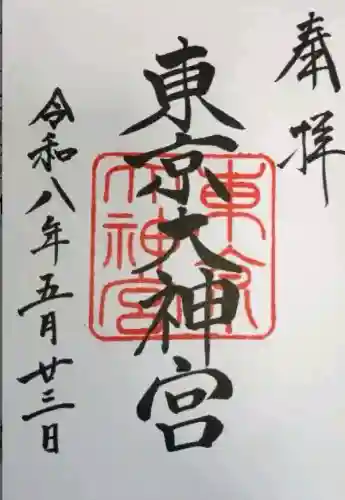 奉拝
東京大神宮
東京大神宮
令和八年五月廿三日